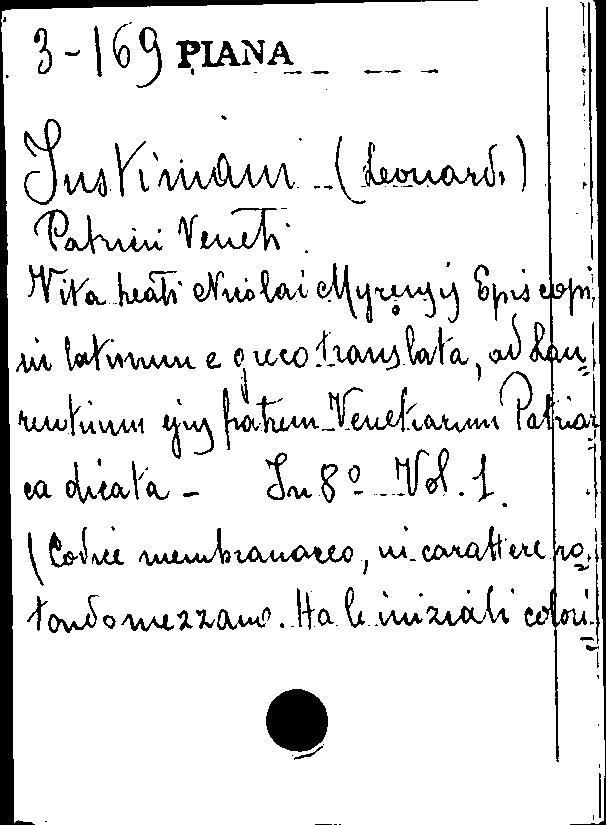 3-169 PIANA
Justiniani (Leonardi)
Patricii Veneti
Vita beati Nicolai Myrensis Episcopi
in latinum e greco translata, ad Lau=
rentium ejus fratrem Venetiarum Patriar
ca dicata - In 8º Vol. 1.
(Codice membranaceo, in carattere ro=
tondo mezzano. Ha le iniziali colori=